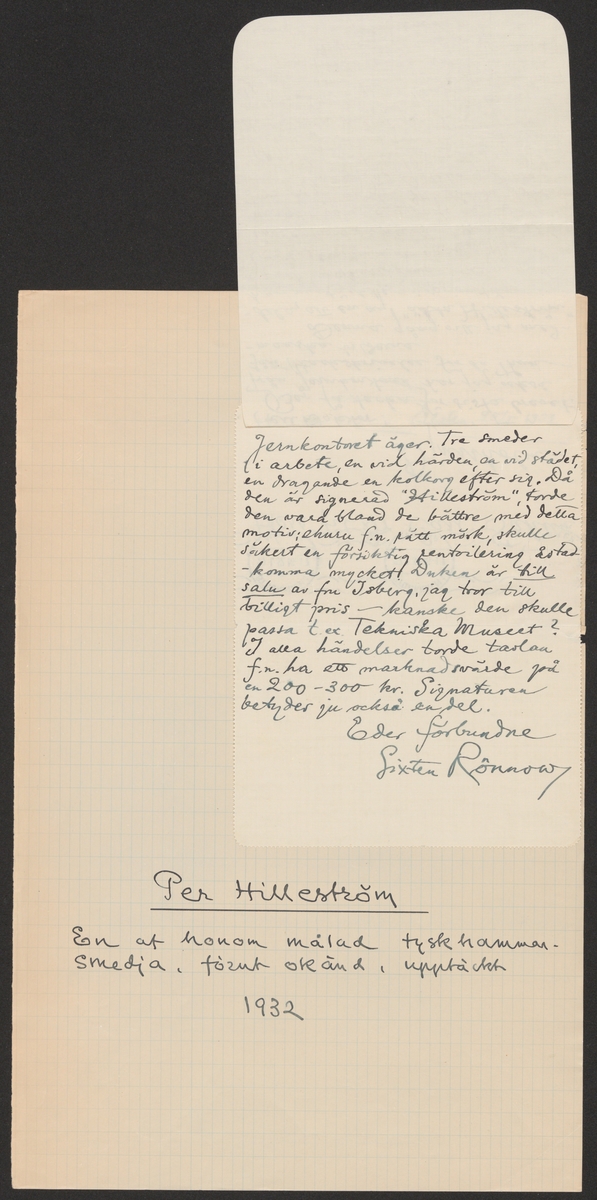 Jernkontoret äger. Tre smeder
i arbete, en vid härden, en vid städet,
en dragande en kolkorg efter sig. Då
den är signerad "Hilleström", torde
den vara bland de bättre med detta
motiv; ehuru f.n. rätt mörk, skulle
säkert en försiktig rentoilering åstad-
-komma mycket! Duken är till
salu av fru Isberg, jag tror till
billigt pris — kanske den skulle
passa t. ex. Tekniska Museet?
I alla händelser torde tavlan
f.n. ha ett marknadsvärde på
en 200-300 kr. Signaturen
betyder ju också en del.
Eder förbundne
Sixten Rönnow
Per Hilleström
En af honom målad tyskhammar-
smedja, förut okänd, upptäckt
1932